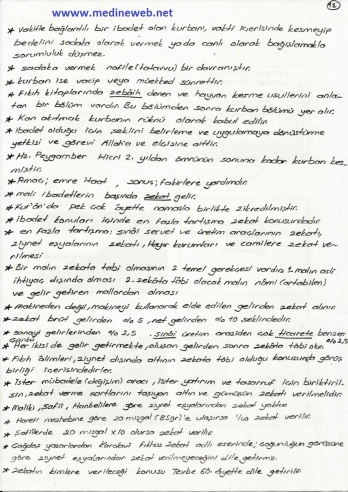 www.medineweb.net
12
* Vakitle bağlantılı bir ibadet olan kurbanı, vakti içerisinde kesmeyip
bedelini sadaka olarak vermek ya da canlı olarak bağışlamakla
sorumluluk düşmez.
* sadaka vermek nafile (tatavvu) bir davranıştır.
* kurban ise vacip veya müekked sünnettir.
* Fıkıh kitaplarında zebâih denen ve hayvan kesme usullerini anla-
tan bir bölüm vardır. Bu bölümden sonra kurban bölümü yer alır.
* Kan akıtmak kurbanın rüknü olarak kabul edilir
* İbadet olduğu için şeklini belirleme ve uygulamaya dönüştürme
yetkisi ve görevi Allah'a ve elçisine aittir.
* Hz. Peygamber Hicri 2. yıldan ömrünün sonuna kadar kurban kes-
miştir.
* Amaç; emre itaat, sonuç; fakirlere yardımdır.
* mali ibadetlerin başında zekat gelir.
* Kur'ân'da pek çok âyette namazla birlikte zikredilmiştir.
* İbadet konuları içinde en fazla tartışma zekat konusundadır.
* en fazla tartışma; sınâi servet ve üretim araçlarının zekatı,
ziynet eşyalarının zekatı, Hayır kurumları ve camilere zekat ve-
rilmesi
* Bir malın zekata tabi olmasının 2 temel gerekçesi vardır. 1- malın asli
ihtiyaç dışında olması 2- zekâta tâbi olacak malın nâmi (artabilen)
ve gelir getiren mallardan olması
* makineden değil, makineyi kullanarak elde edilen gelirden zekat alınır
* zekat brüt gelirden % 5, net gelirden % 10 şeklindedir.
* sanayi gelirlerinden % 2,5. sınâi üretim araziden çok ticarete benzer.
çünkü
% 2,5
* Her ikisi de gelir getirmekte, oluşan gelirden sonra zekâta tâbi olur.
* Fıkıh bilimleri, ziynet dışında altının zekata tâbi olduğu konusunda görüş
birliği içerisindedirler.
* İster mübadele (değişim) aracı, ister yatırım ve tasarruf için biriktiril-
sin, zekat verme şartlarını taşıyan altın ve gümüşün zekatı verilmelidir
* Maliki, Şafii, Hanbelilere göre ziynet eşyalarından zekat yoktur
* Hanefi mehebine göre 20 miskal (85gr)'e ulaşırsa zekat verilir.
* Şafilerde 20 miskal x 10 olursa zekat verilir.
* Çağdaş yazarlardan Karadavi Fıkhuz Zekat adlı eserinde; çoğunluğun görüşüne
göre ziynet eşyalarından zekat verilmeyeceğini dile getirmiş.
* Zekatın kimlere verileceği konusu Tevbe 60. âyette dile getirilir.